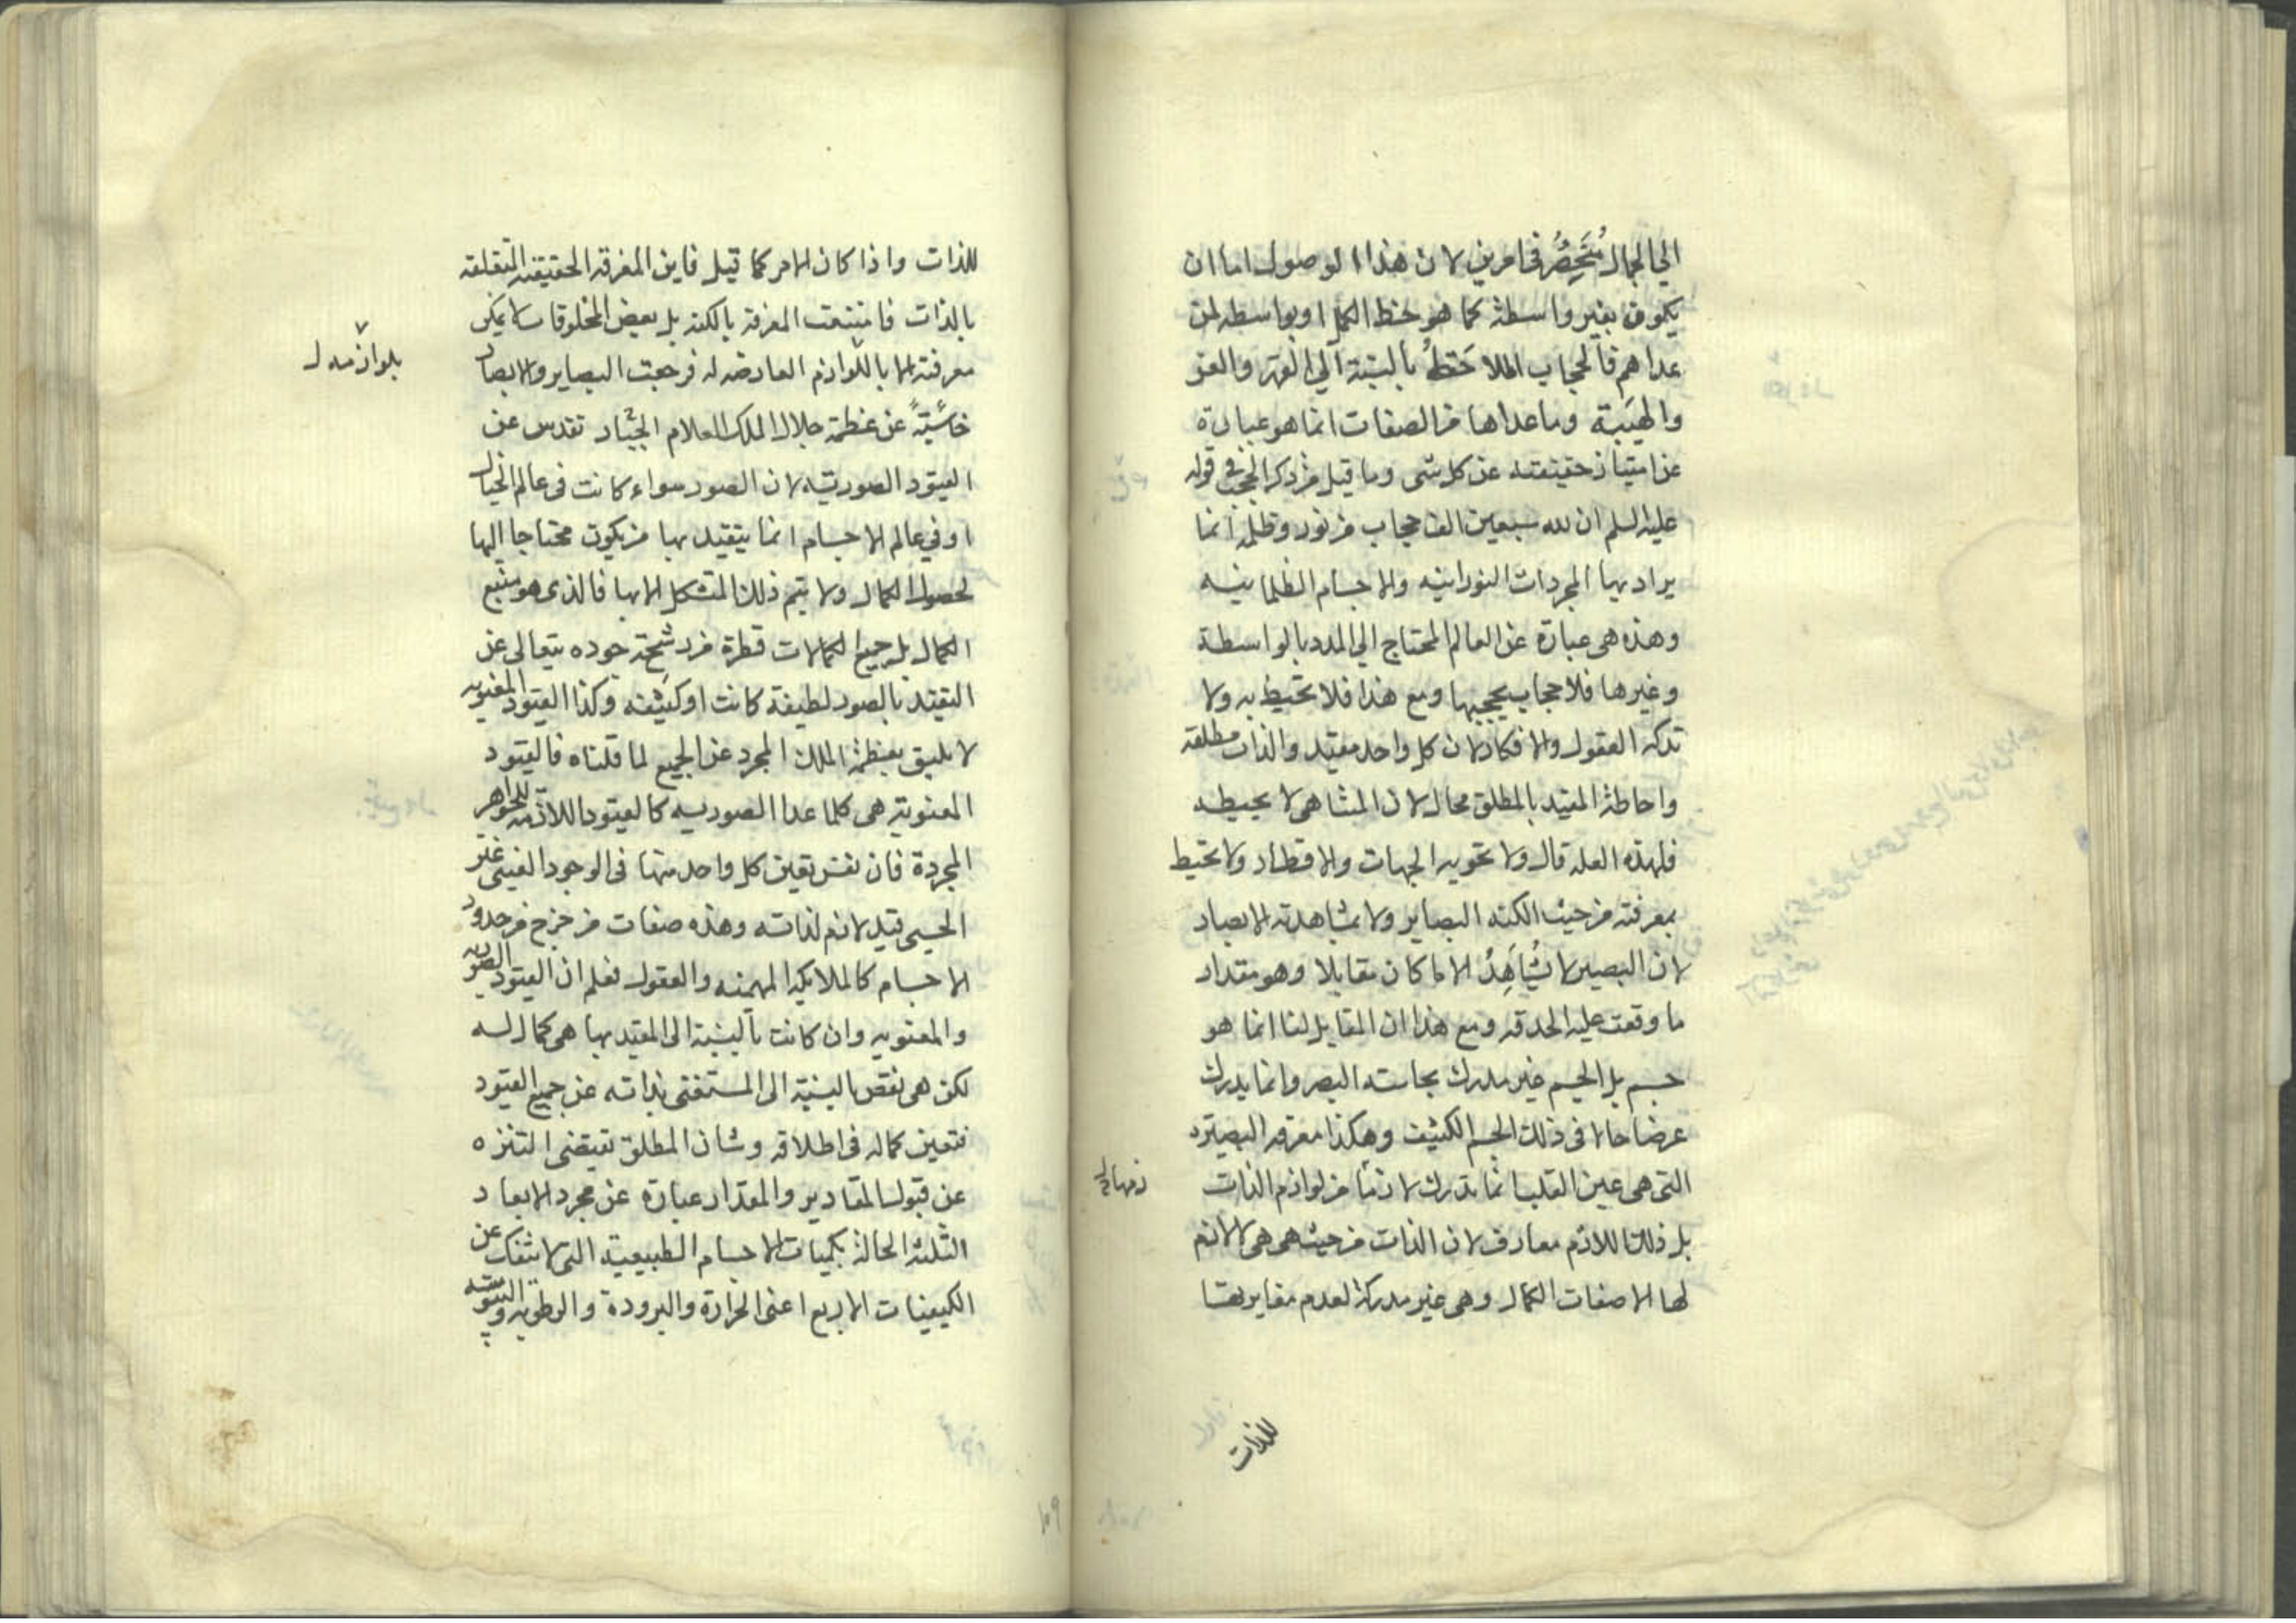 الى الجمال مُنحَصِرٌ في امرين لان هذا الوصول اما ان
يكون بغير واسطة كما هو لحظ الكمل او بواسطه لمن
عداهم فالحجاب الملاحَظُ بالنسبة الي القهر والعز
والهيَبة وما عداها من الصفات انما هو عبارة
عن امتياز حقيقته عن كل شى وما قيل من ذكر الحجب في قوله
عليه السلم ان لله سبعين الف حجاب من نور وظلمة انما
يراد بها المجردات النورانيه والاجسام الظلمانيه
وهذه هى عبارة عن العالم المحتاج الي المدد بالواسطة
وغيرها فلا حجاب يحجبها ومع هذا فلا تحيط به ولا
تدركه العقول والافكار لان كل واحد مقيد والذات مطلقه
واحاطة المقيد بالمطلق محال لان المتناهى لا يحيط به
فلهذه العله قال ولا تحويه الجهات والاقطار ولا تحيط
بمعرفته من حيث الكنه البصاير ولا بمشاهدته الابصار
لان البصير لا يُشَاهِدُ الا ما كان مقابلا وهو مقدار
ما وقعت عليه الحدقه ومع هذا ان المقابل لنا انما هو
جسم بل الجسم غير مدرك بحاسته البصر وانما يدرك
عرضا حالا فى ذلك الجسم الكثيف وهكذا معرفه البصيرة
التى هى عين القلب انما تدرك لازما من لوازم الذات
بل ذلك اللازم معارف لان الذات من حيث هى هى لا لازم
لها الا صفات الكمال وهى غير مدركة لعدم مغايرتها
للذات
للذات واذا كان الامر كما قيل فاين المعرفه الحقيقيه المتعلقه
بالذات فامتنعت المعرفة بالكنه بل بعض المخلوقات لا يمكن
معرفته الا باللوازم العارضه له فرجعت البصاير والابصار
بلوازمه ل
خاسئيةً عن عظمة جلال الملك العلام الجبار تقدس عن
القيود الصوريه لان الصور سواء كانت فى عالم الخيال
او في عالم الاجسام انما يتقيد بها من يكون محتاجا اليها
لحصول الكمال ولا يتم ذلك المتشكل الا بها فالذى هو منبع
الكمال بل جميع الكمالات قطرة من رشحة جوده يتعالى عن
التقيد بالصور لطيفة كانت او كثيفه وكذا القيود المعنويه
لا يليق بعظمة الملك المجرد عن الجميع لما قلناه فالقيود
المعنوية هى كلما عدا الصوريه كالقيود اللازمه للجواهر
المجردة فان نفس تعين كل واحد منها فى الوجود العينى غير
الحسى قيد لازم لذاته وهذه صفات من خرج من حدود
الاجسام كالملايكه المهيمنه والعقول فعلم ان القيود الصوريه
والمعنويه وان كانت بالنسبة الى المقيد بها هى كمال له
لكن هى نقص بالنسبة الى المستغنى بذاته عن جميع القيود
فتعين كماله فى اطلاقه وشان المطلق تقيتضى التنزه
عن قبول المقادير والمقدار عبارة عن مجرد الابعاد
الثلثة الحالة بكميات الاجسام الطبيعية التى لا تنفك عن
الكيفيات الاربع اعنى الحرارة والبرودة والرطوبه واليبوسه
١٠٩